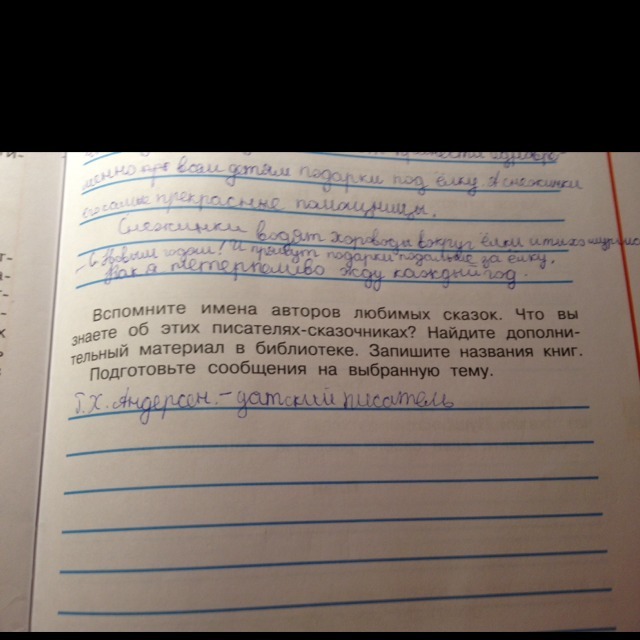 всем детям подарки под ёлку А снежинки
его самые прекрасные помощницы.
Снежинки водят хороводы вокруг ёлки и тихо
С Новым годом! И прячут подарки подальше за ёлку.
Как я нетерпеливо жду каждый год.
Вспомните имена авторов любимых сказок. Что вы
знаете об этих писателях-сказочниках? Найдите дополни-
тельный материал в библиотеке. Запишите названия книг.
Подготовьте сообщения на выбранную тему.
Г.Х. Андерсен. – датский писатель